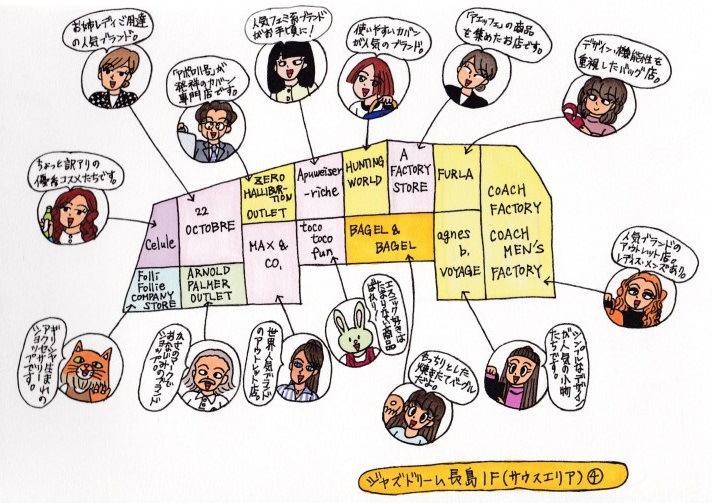 お姉レディご用達
の人気ブランド。
「アポロ11号」が
発祥のカバン
専門店です。
人気フェミ系ブランド
がお手頃に!
使いやすいカバン
が人気のブランド。
「アエッフェ」の商品
を集めたお店です。
デザイン、機能性を
重視したバッグ店。
ちょっと訳アリの
優秀コスメたちです。
Celule
22
OCTOBRE
ZERO
HALLIBUR-
TION
OUTLET
Apuweiser
-riche
HUNTING
WORLD
A
FACTORY
STORE
FURLA
COACH
FACTORY
COACH
MEN'S
FACTORY
Folli
Follie
COMPANY
STORE
ARNOLD
PALMER
OUTLET
MAX &
CO.
toco
toco
fun
BAGEL &
BAGEL
agnes
b.
VOYAGE
人気ブランドの
アウトレット店。
レディス・メンズあり。
ギリシャ生まれの
アクセサリー
ショップです。
かさのマークで
おなじみ、ブランド
ショップ。
世界人気ブランド
のアウトレット店。
エスニック好きは
たまりない商品
ばかり!
もっちりとした
焼きたてベーグル
だよ。
シンプルなデザイン
が人気の小物
たちです。
ジャズドリーム長島1F(サウスエリア)④